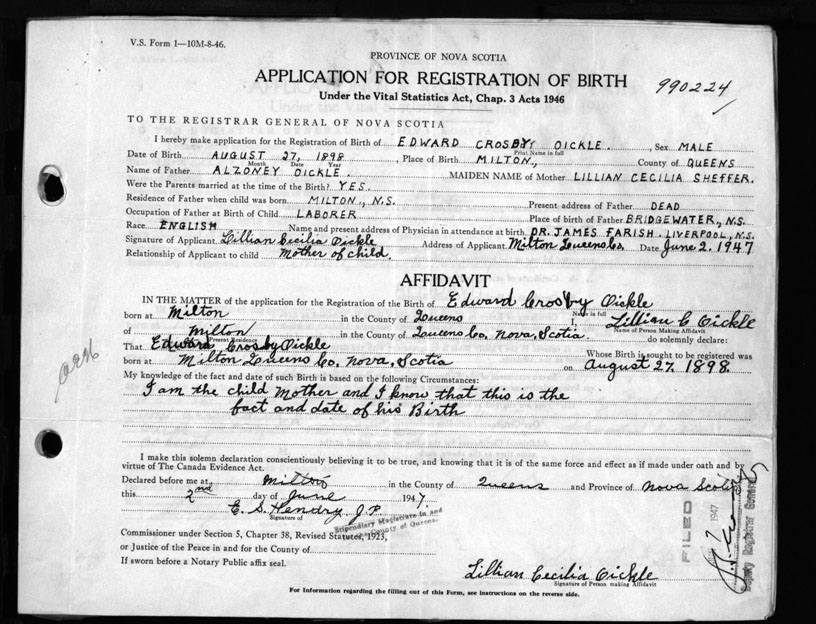 V.S. Form 1—10M-8-46.
PROVINCE OF NOVA SCOTIA
APPLICATION FOR REGISTRATION OF BIRTH
990224
Under the Vital Statistics Act, Chap. 3 Acts 1946
TO THE REGISTRAR GENERAL OF NOVA SCOTIA
I hereby make application for the Registration of Birth of EDWARD CROSBY OICKLE. , Sex MALE
Print Name in full
Date of Birth AUGUST 27, 1898 , Place of Birth MILTON., County of QUEENS
Month Date Year
Name of Father ALZONEY OICKLE. MAIDEN NAME of Mother LILLIAN CECILIA SHEFFER.
Were the Parents married at the time of the Birth? YES.
Residence of Father when child was born MILTON., N.S. Present address of Father DEAD
Occupation of Father at Birth of Child LABORER Place of birth of Father BRIDGEWATER., N.S.
Race ENGLISH Name and present address of Physician in attendance at birth DR. JAMES FARISH. LIVERPOOL, N.S.
Signature of Applicant Lillian Cecilia Oickle Address of Applicant Milton Queens Co. Date June 2. 1947
Relationship of Applicant to child Mother of child.
AFFIDAVIT
IN THE MATTER of the application for the Registration of the Birth of Edward Crosby Oickle
Name in full
born at Milton in the County of Queens I, Lillian C Oickle
Name of Person Making Affidavit
of Milton in the County of Queens Co. Nova, Scotia. do solemnly declare:
Present Residence
That Edward Crosby Oickle Whose Birth is sought to be registered was
born at Milton Queens Co. Nova, Scotia on August 27. 1898.
My knowledge of the fact and date of such Birth is based on the following Circumstances:
I am the child Mother and I know that this is the
fact and date of his Birth
I make this solemn declaration conscientiously believing it to be true, and knowing that it is of the same force and effect as if made under oath and by
virtue of The Canada Evidence Act.
Declared before me at Milton in the County of Queens and Province of Nova Scotia
this 2nd day of June 1947.
E. S. Hendry J.P.
Signature of
Stipendiary Magistrate in and
County of Queens.
Commissioner under Section 5, Chapter 38, Revised Statutes, 1923,
or Justice of the Peace in and for the County of
If sworn before a Notary Public affix seal.
Lillian Cecilia Oickle
Signature of Person making Affidavit
For Information regarding the filling out of this Form, see instructions on the reverse side.
FILED
7 1947
Deputy Registrar General